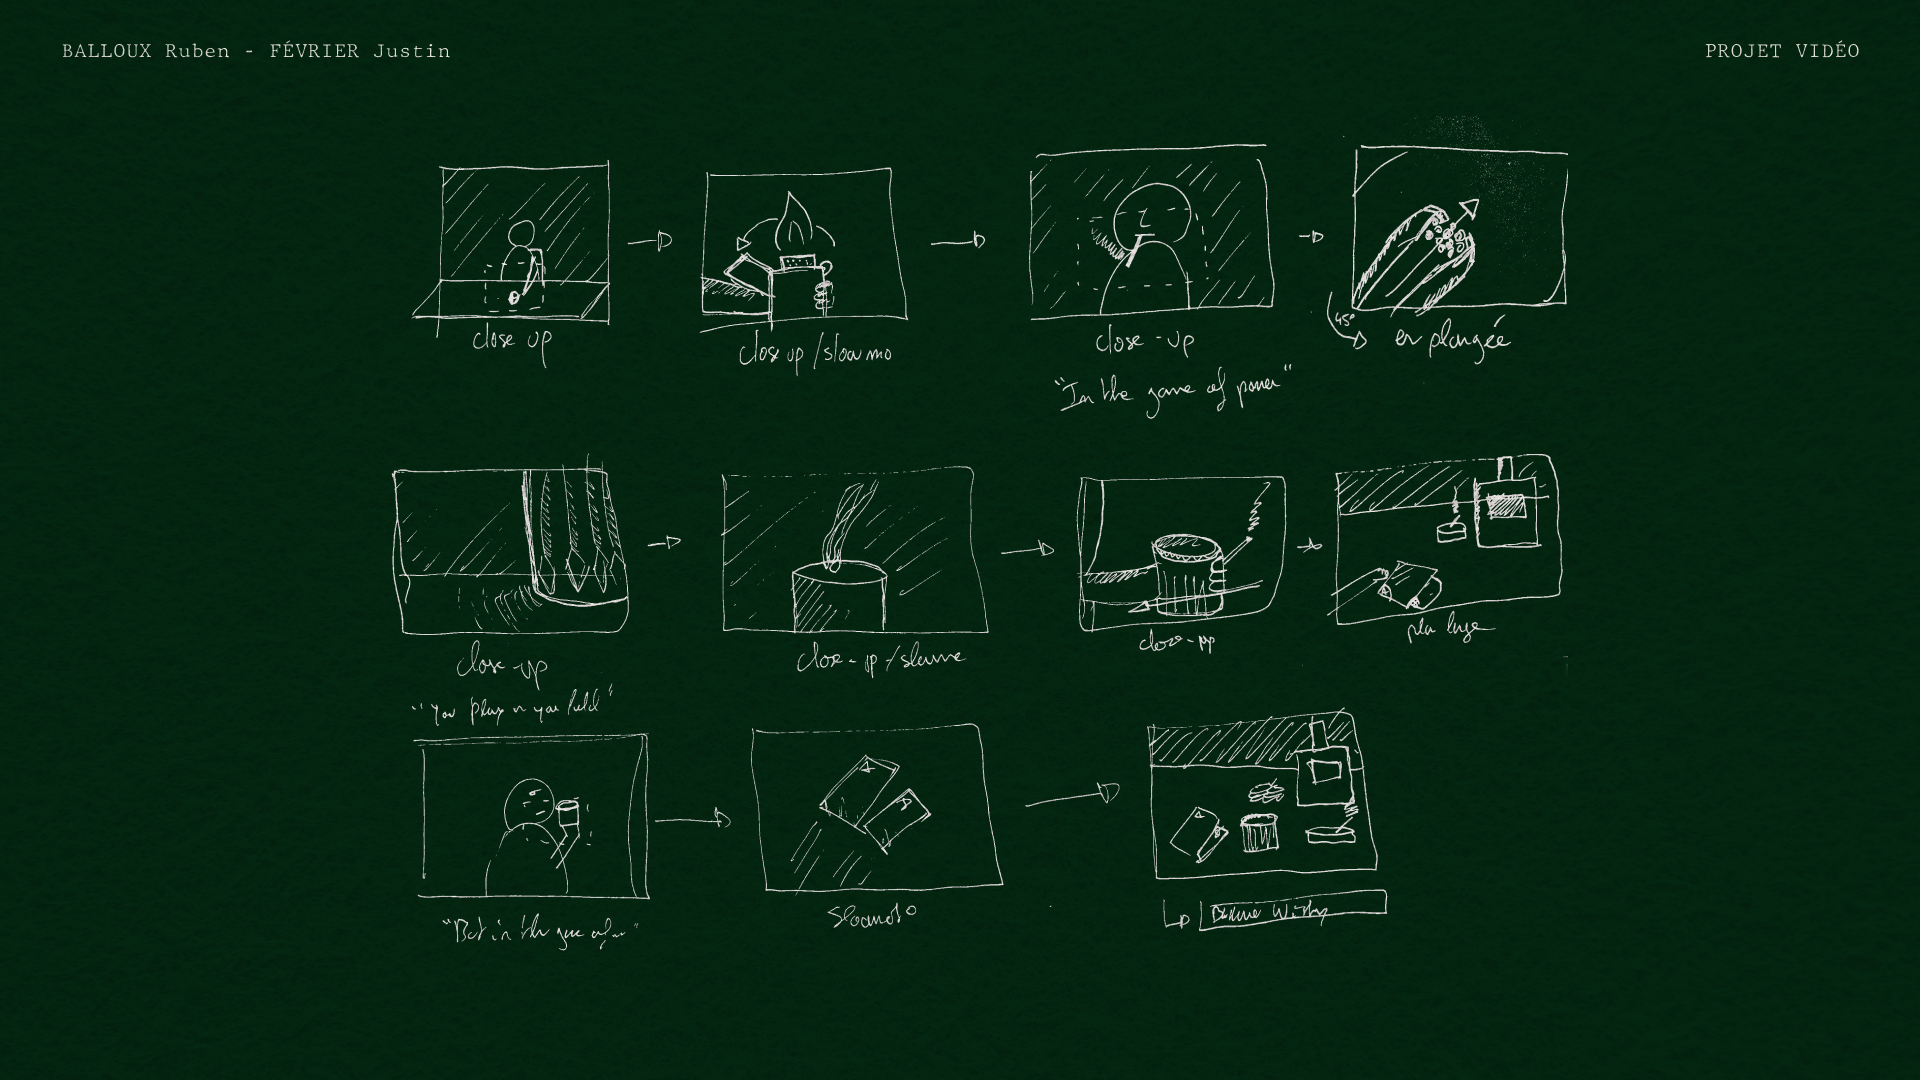 BALLOUX Ruben - FÉVRIER Justin
PROJET VIDÉO
close up
close up / slow mo
close-up
en plongée
45°
"In the game of power"
close-up
close-up / slowmo
close-up
plan large
"You play or you fold"
"But in the game of"
Slowmo